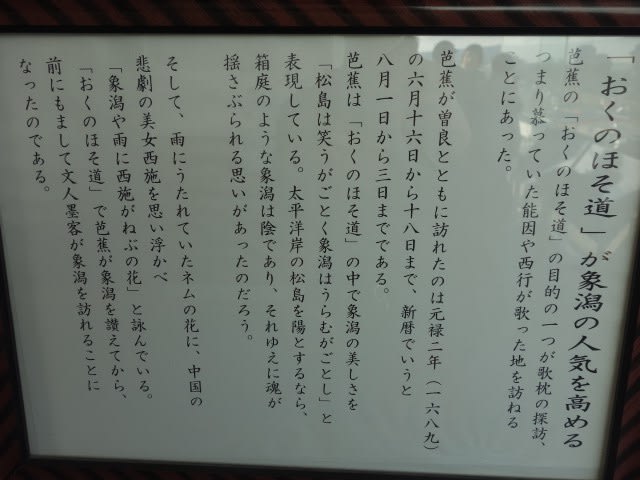 「おくのほそ道」が象潟の人気を高める
芭蕉の「おくのほそ道」の目的の一つが歌枕の探訪、
つまり慕っていた能因や西行が歌った地を訪ねる
ことにあった。
芭蕉が曽良とともに訪れたのは元禄二年（一六八九）
の六月十六日から十八日まで、新暦でいうと
八月一日から三日までである。
芭蕉は「おくのほそ道」の中で象潟の美しさを
「松島は笑うがごとく象潟はうらむがごとし」と
表現している。太平洋岸の松島を陽とするなら、
箱庭のような象潟は陰であり、それゆえに魂が
揺さぶられる思いがあったのだろう。
そして、雨にうたれていたネムの花に、中国の
悲劇の美女西施を思い浮かべ
「象潟や雨に西施がねぶの花」と詠んでいる。
「おくのほそ道」で芭蕉が象潟を讃えてから、
前にもまして文人墨客が象潟を訪れることに
なったのである。